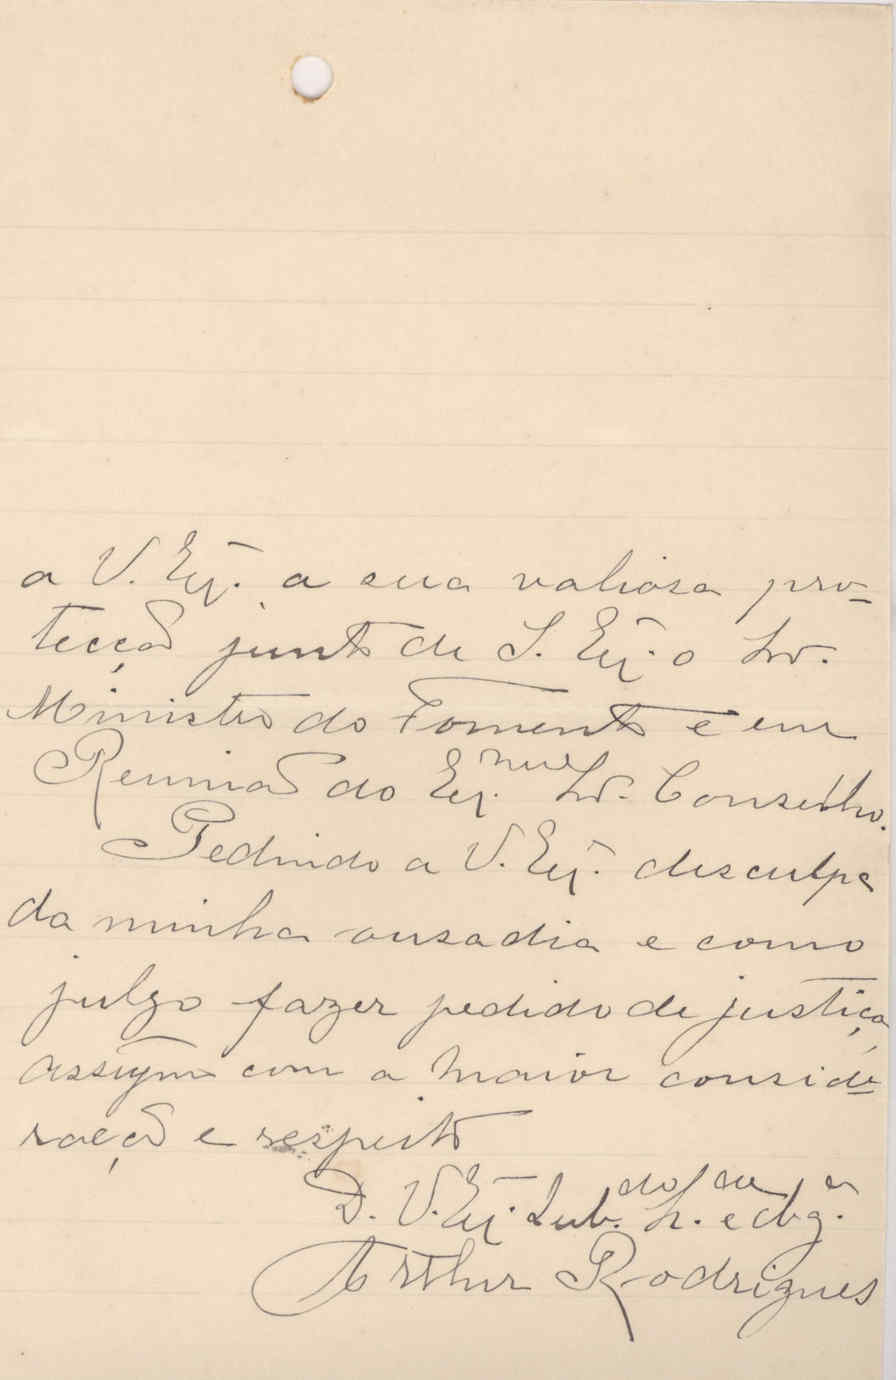 a V. Exª. a sua valiosa pro-
tecção junto de S. Exª. o Snr.
Ministro do Fomento e em
Reunião do Exmo Snr. Conselho.
Pedindo a V. Exª. desculpa
da minha ousadia e como
julgo fazer pedido de justiça,
assigno com a maior conside-
ração e respeito
D. V. Exª. Sub.do e obg.
Arthur Rodrigues